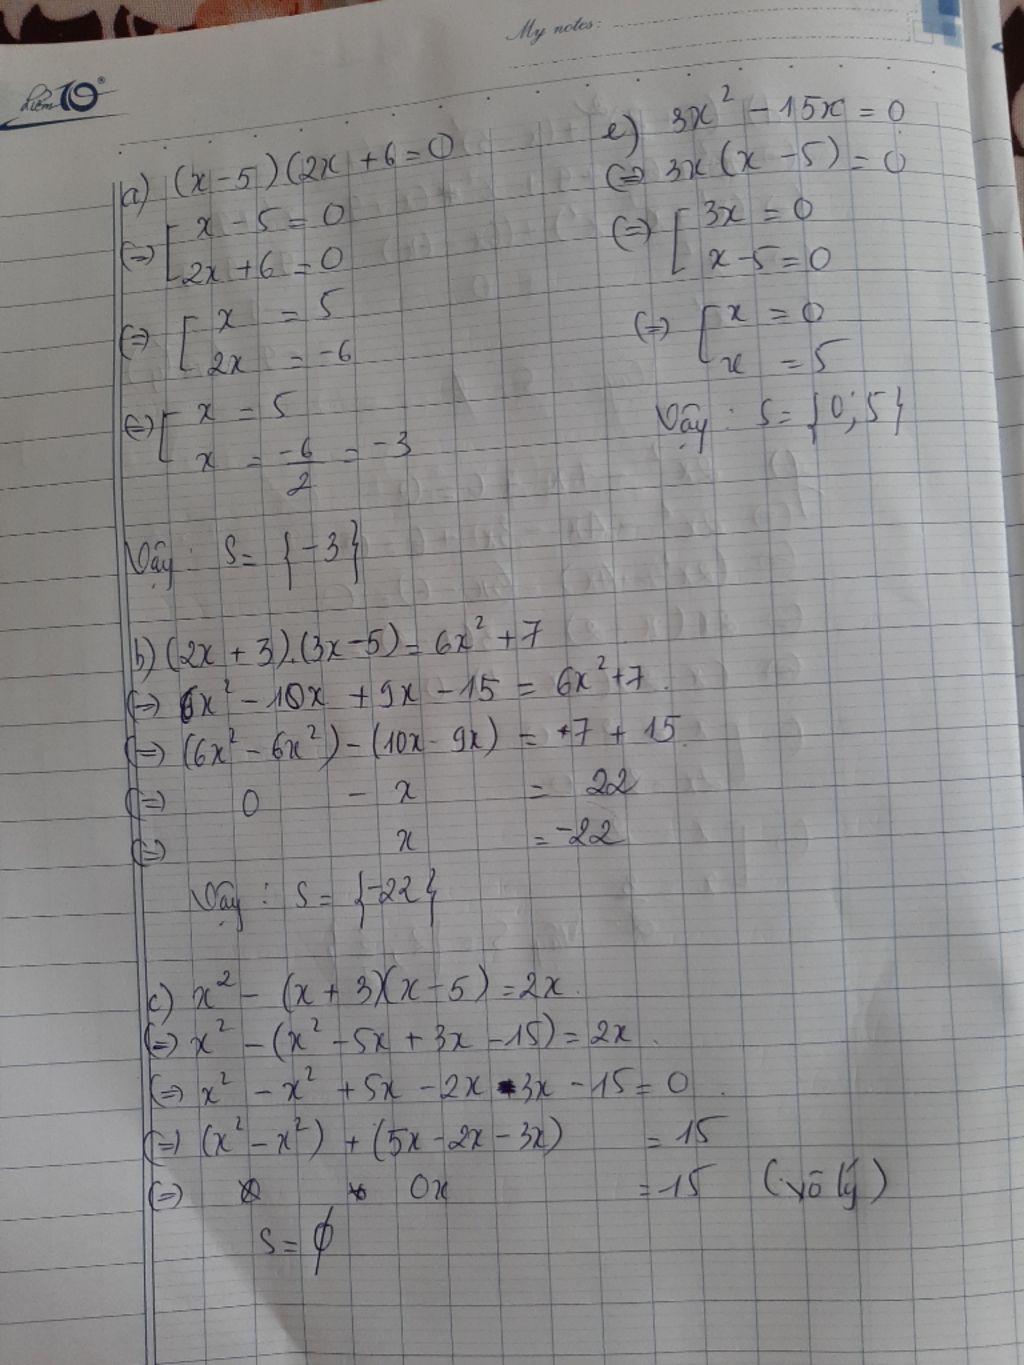 My notes:
Điểm 10
a) (x-5)(2x+6=0
(=) [ x-5=0
2x+6=0
(=) [ x = 5
2x = -6
(=) [ x = 5
x = -6/2 = -3
Vậy: S= {-3}
b) (2x+3).(3x-5)=6x²+7
(=) 6x²-10x+9x-15=6x²+7.
(=) (6x²-6x²)-(10x-9x) = +7+15
(=) 0 - x = 22
(=) x = -22
Vậy: S= {-22}
c) x²-(x+3)(x-5)=2x.
(=) x²-(x²-5x+3x-15)=2x.
(=) x²-x²+5x-2x-3x-15=0.
(=) (x²-x²)+(5x-2x-3x) =15
(=) 0x =15 (vô lý)
S=∅
e) 3x²-15x=0
(=) 3x(x-5)=0
(=) [ 3x=0
x-5=0
(=) [ x=0
x=5
Vậy: S={0;5}